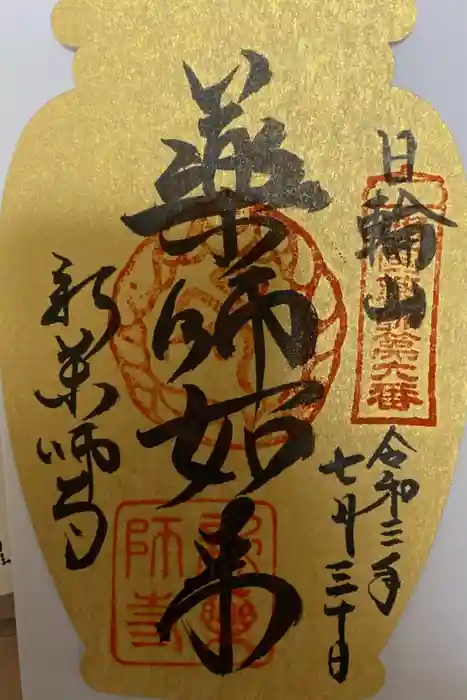 日輪山
第六番
令和三年
七月三十日
薬師如来
新薬師寺
新薬師寺